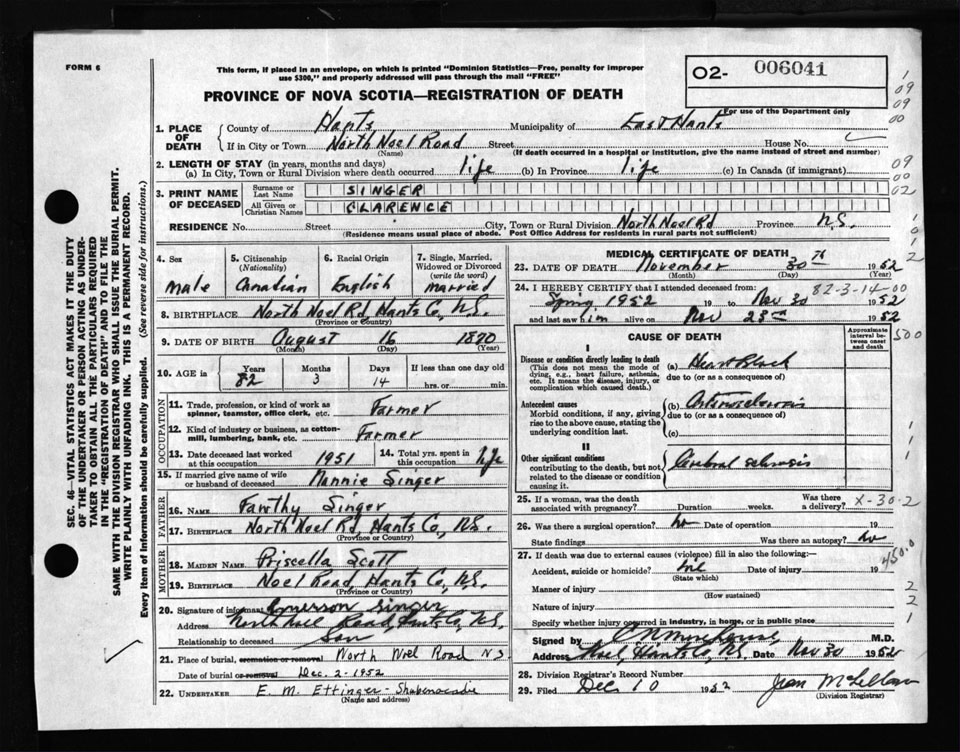 FORM 6
This form, if placed in an envelope, on which is printed "Dominion Statistics—Free, penalty for improper
use $300," and properly addressed will pass through the mail "FREE"
02- 006041
For use of the Department only
PROVINCE OF NOVA SCOTIA—REGISTRATION OF DEATH
1. PLACE OF DEATH
County of Hants, Municipality of East Hants
If in City or Town North Noel Road Street House No.
(Name) (If death occurred in a hospital or institution, give the name instead of street and number)
2. LENGTH OF STAY (in years, months and days)
(a) In City, Town or Rural Division where death occurred life (b) In Province life (c) In Canada (if immigrant)
3. PRINT NAME OF DECEASED
Surname or Last Name SINGER
All Given or Christian Names CLARENCE
RESIDENCE No. Street City, Town or Rural Division North Noel Rd Province N.S.
(Residence means usual place of abode. Post Office Address for residents in rural parts not sufficient)
4. Sex Male
5. Citizenship (Nationality) Canadian
6. Racial Origin English
7. Single, Married, Widowed or Divorced (write the word) Married
8. BIRTHPLACE North Noel Rd, Hants Co, N.S.
(Province or Country)
9. DATE OF BIRTH August 16 1870
(Month) (Day) (Year)
10. AGE in Years 82 Months 3 Days 14 If less than one day old hrs. or min.
OCCUPATION
11. Trade, profession, or kind of work as spinner, teamster, office clerk, etc. Farmer
12. Kind of industry or business, as cotton-mill, lumbering, bank, etc. Farmer
13. Date deceased last worked at this occupation 1951
14. Total yrs. spent in this occupation life
15. If married give name of wife or husband of deceased Nannie Singer
FATHER
16. NAME Singer
17. BIRTHPLACE North Noel Rd, Hants Co, N.S.
(Province or Country)
MOTHER
18. MAIDEN NAME Priscella Scott
19. BIRTHPLACE Noel Road, Hants Co, N.S.
(Province or Country)
20. Signature of informant Emerson Singer
Address North Noel Road, Hants Co, N.S.
Relationship to deceased Son
21. Place of burial, cremation or removal North Noel Road N.S.
Date of burial or removal Dec. 2 - 1952
22. UNDERTAKER E. M. Ettinger - Shubenacadie
(Name and address)
MEDICAL CERTIFICATE OF DEATH
23. DATE OF DEATH November 30th 1952
(Month) (Day)
24. I HEREBY CERTIFY that I attended deceased from: 82-3-14-00
Spring 1952 19 to Nov 30 1952
and last saw him alive on Nov 23rd 1952
CAUSE OF DEATH
Approximate interval between onset and death
I
Disease or condition directly leading to death
(This does not mean the mode of dying, e.g., heart failure, asthenia, etc. It means the disease, injury, or complication which caused death.)
(a) Heart Block
due to (or as a consequence of)
Antecedent causes
Morbid conditions, if any, giving rise to the above cause, stating the underlying condition last.
(b) Arteriosclerosis
due to (or as a consequence of)
(c)
II
Other significant conditions
contributing to the death, but not related to the disease or condition causing it.
Cerebral sclerosis
25. If a woman, was the death associated with pregnancy? Duration weeks. Was there a delivery? X-30-2
26. Was there a surgical operation? no Date of operation 19
State findings Was there an autopsy? no
27. If death was due to external causes (violence) fill in also the following:—
Accident, suicide or homicide? Date of injury 19
(State which)
Manner of injury
(How sustained)
Nature of injury
Specify whether injury occurred in industry, in home, or in public place
Signed by M.D.
Address Noel, Hants Co, N.S. Date Nov 30 1952
28. Division Registrar's Record Number
29. Filed Dec 10 1952 Jean McLellan
(Division Registrar)
SEC. 46—VITAL STATISTICS ACT MAKES IT THE DUTY
OF THE UNDERTAKER OR PERSON ACTING AS UNDER-
TAKER TO OBTAIN ALL THE PARTICULARS REQUIRED
IN THE "REGISTRATION OF DEATH" AND TO FILE THE
SAME WITH THE DIVISION REGISTRAR WHO SHALL ISSUE THE BURIAL PERMIT.
WRITE PLAINLY WITH UNFADING INK. THIS IS A PERMANENT RECORD.
Every item of information should be carefully supplied. (See reverse side for instructions.)